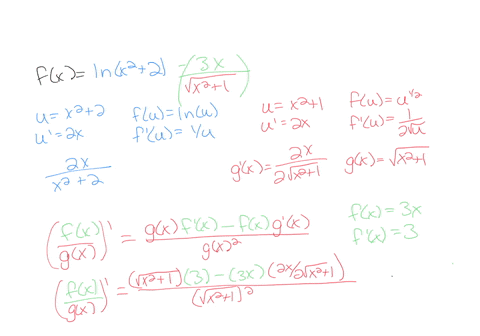 f(x) = ln(x²+2) - (3x / √(x²+1))
u = x²+2 f(u) = ln(u)
u' = 2x f'(u) = 1/u
2x / (x²+2)
u = x²+1 f(u) = u^(1/2)
u' = 2x f'(u) = 1 / (2√u)
g'(x) = 2x / (2√(x²+1)) g(x) = √(x²+1)
f(x) = 3x
f'(x) = 3
(f(x) / g(x))' = (g(x) f'(x) - f(x) g'(x)) / g(x)²
(f(x) / g(x))' = ((√(x²+1))(3) - (3x)(2x/2√(x²+1))) / (√(x²+1))²